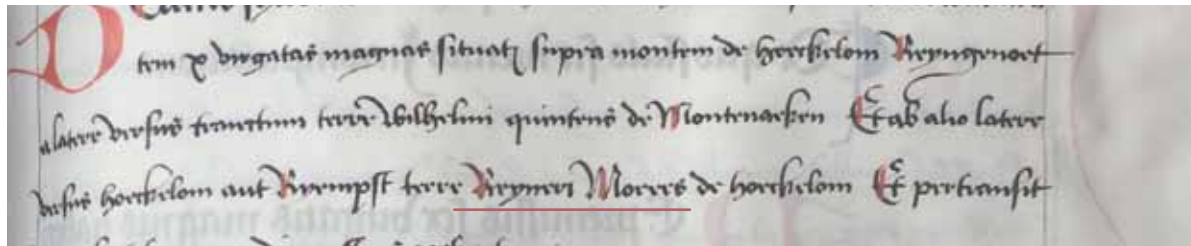 tem x virgatas magnas situatas supra montem de horckelom Reyngenoet
a latere versus tranctum terre Wilhelmi quintens de Montenaeken Et ab alio latere
versus horckelom aut Rvempst terre Reyneri Moeres de horckelom Et pertransit